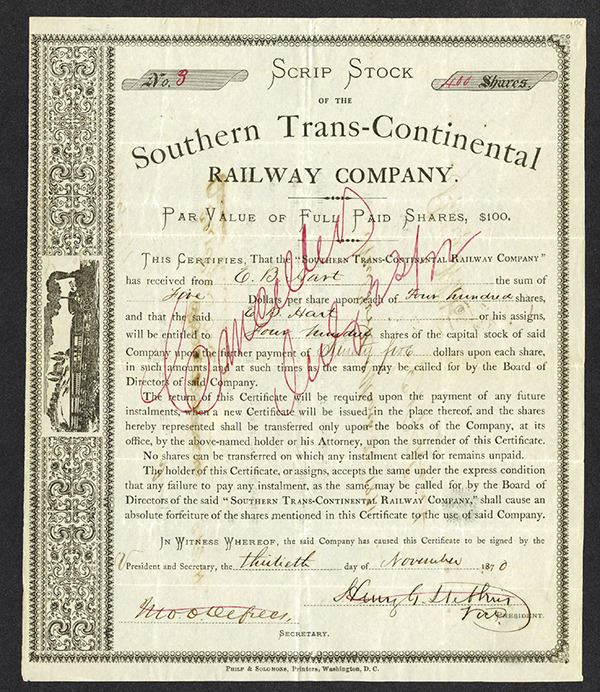 No. 3
Scrip Stock
400 Shares.
of the
Southern Trans-Continental
Railway Company.
Par Value of Full Paid Shares, $100.
This Certifies, That the "Southern Trans-Continental Railway Company"
has received from E. B. Hart the sum of
Five Dollars per share upon each of Four hundred shares,
and that the said E. B. Hart or his assigns,
will be entitled to Four hundred shares of the capital stock of said
Company upon the further payment of Ninety five dollars upon each share,
in such amounts and at such times as the same may be called for by the Board of
Directors of said Company.
The return of this Certificate will be required upon the payment of any future
instalments, when a new Certificate will be issued in the place thereof, and the shares
hereby represented shall be transferred only upon the books of the Company, at its
office, by the above-named holder or his Attorney, upon the surrender of this Certificate.
No shares can be transferred on which any instalment called for remains unpaid.
The holder of this Certificate, or assigns, accepts the same under the express condition
that any failure to pay any instalment, as the same may be called for by the Board of
Directors of the said "Southern Trans-Continental Railway Company," shall cause an
absolute forfeiture of the shares mentioned in this Certificate to the use of said Company.
In Witness Whereof, the said Company has caused this Certificate to be signed by the
V President and Secretary, the thirtieth day of November 1870
Henry G. Stebbins
Vice President.
Secretary.
Philp & Solomons, Printers, Washington, D. C.
Cancelled